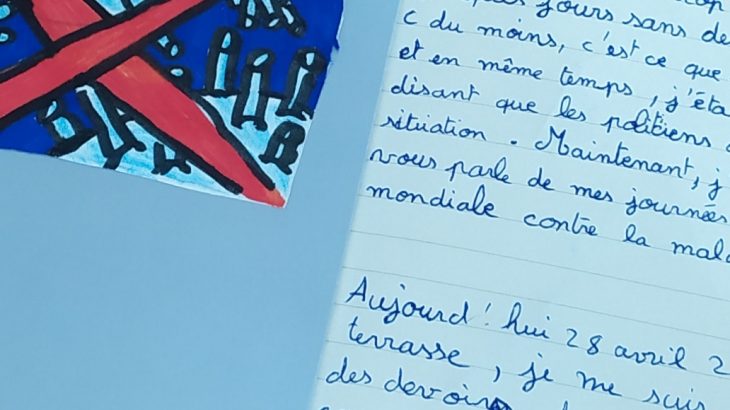 jours sans de
c du moins, c'est ce que
et en même temps, j'éta
disant que les politiens
situation. Maintenant, j
vous parle de mes journées
mondiale contre la mala
Aujourd'hui 28 avril 2
terrasse, je me suis
des devoirs